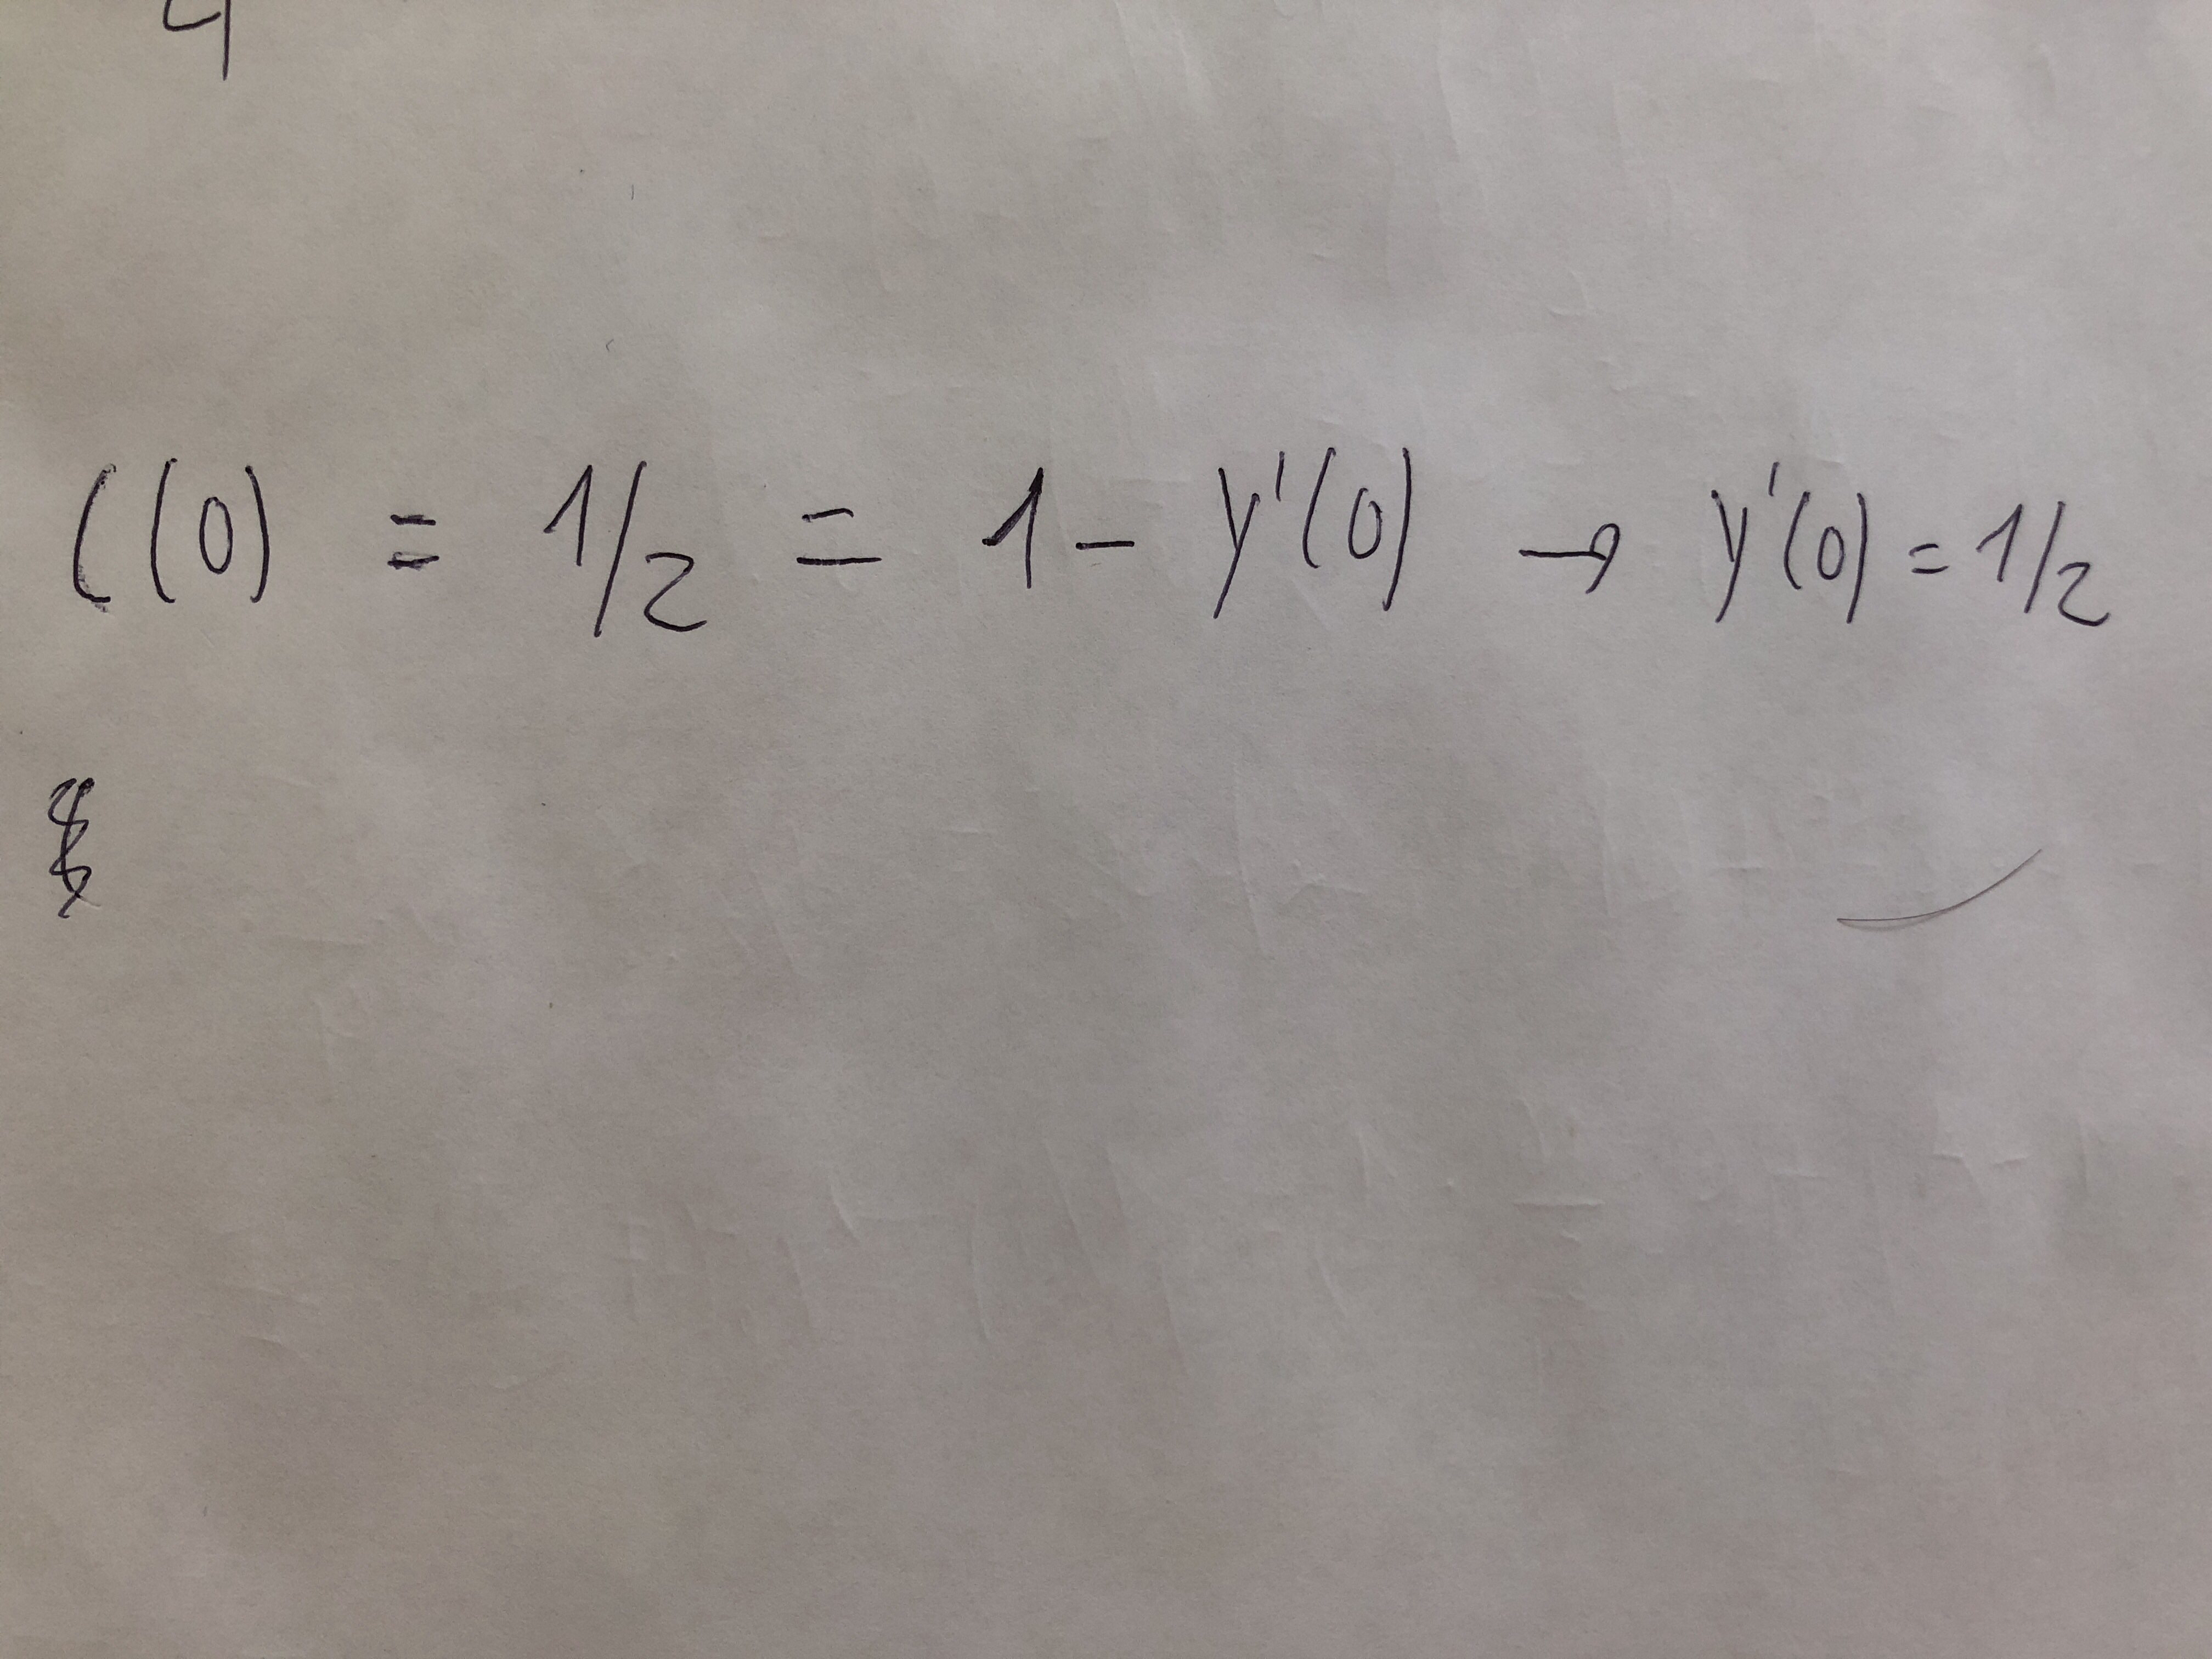 C(0) = 1/2 = 1 - y'(0) → y'(0) = 1/2